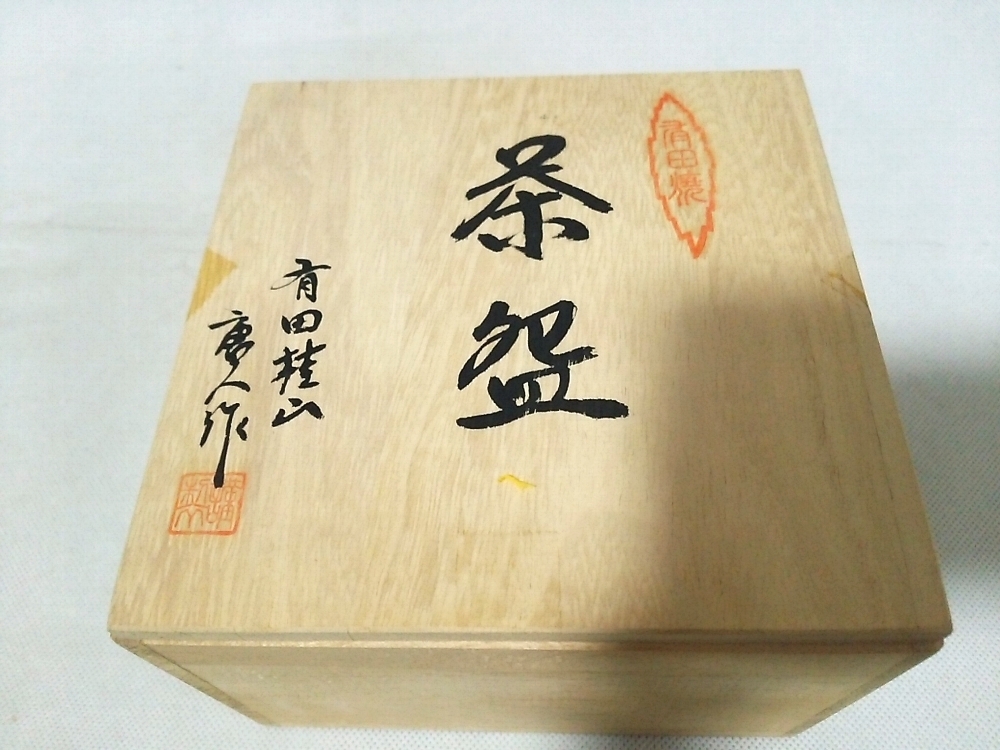 有田焼
茶盌
有田桂山
唐人作